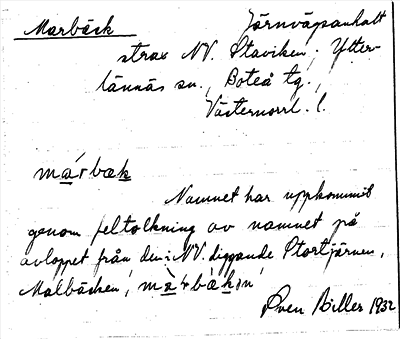 Marbäck Järnvägsanhalt
strax NV. Staviken, Ytter-
lännäs sn., Boteå tg.,
Västernorrl. l.
márbæk
Namnet har uppkommit
genom feltolkning av namnet på
avloppet från den i NV. liggande Stortjärnen,
Malbäcken,
Sven Biller 1932